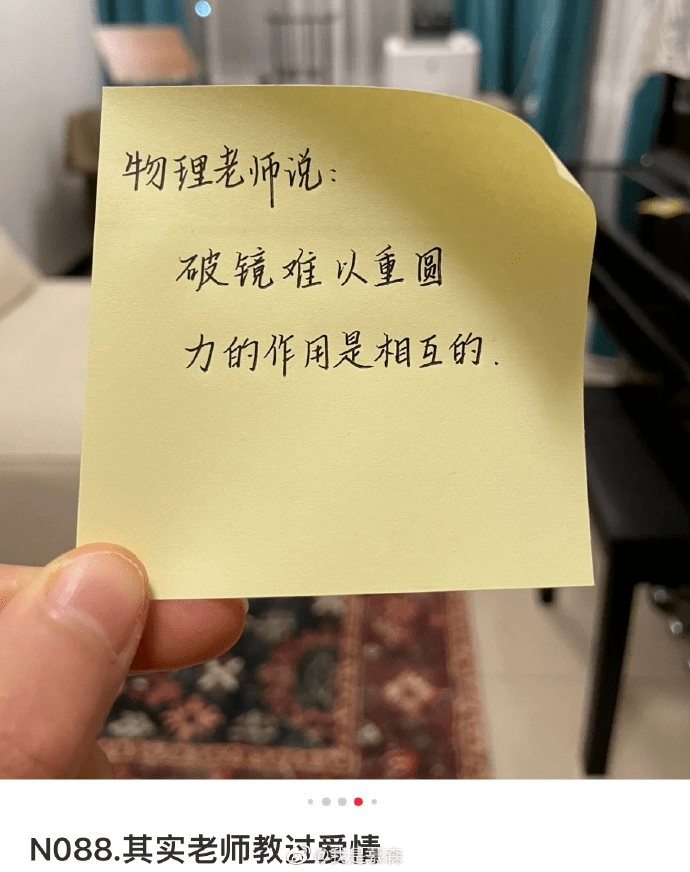 物理老师说:
破镜难以重圆
力的作用是相互的.
N088.其实老师教过爱情